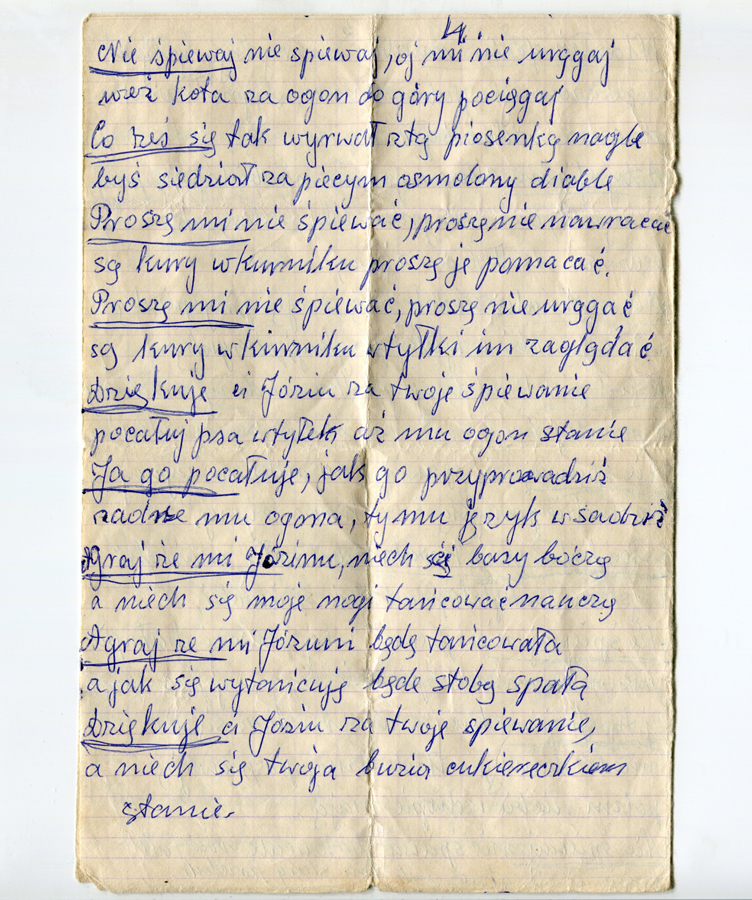 4.
Nie śpiewaj nie śpiewaj, oj mi nie urągaj
weź kota za ogon do góry pociągaj
Co żeś się tak wyrwał stą piosenką nagle
byś siedział za piecym osmolony diable
Proszę mi nie śpiewać, proszę nie nawracać
są kury wkurniku proszę je pomacać.
Proszę mi nie śpiewać, proszę nie urągać
są kury wkurniku wtyłki im zaglądać
Dziękuje ci Józiu za twoje śpiewanie
pocałuj psa wtyłek aż mu ogon stanie
Ja go pocałuje, jak go przyprowadziż
zadrze mu ogona, ty mu język wsadziż
Agraj że mi Józiniu, niech się basy boczą
a niech się moje nogi tańcować nauczą
Agraj ze mi Józuni będę tańcowała
a jak się wytańcuję będe stobą spałą
Dziękuje ci Józiu za twoje spiewanie,
a niech się twoja buzia cukiereczkiem
stanie.